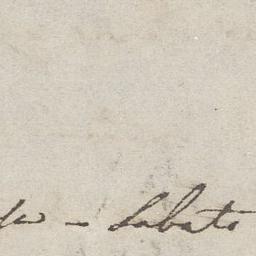 - Sabato